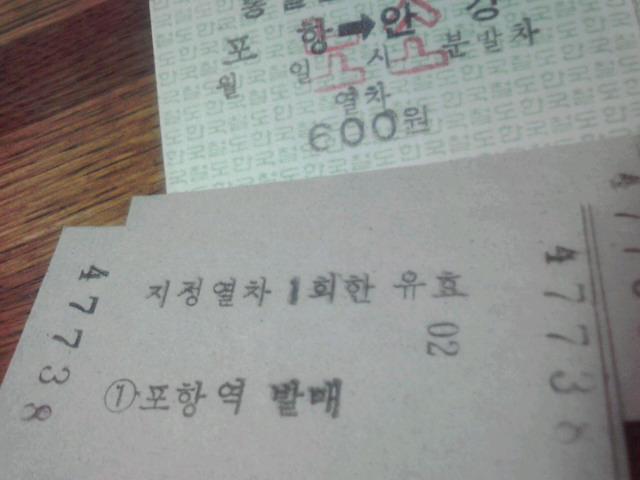 포 항 ➡ 안 강
월 일 시 분발차
열차
600원
47738
지정열차 1회한 유효
02
①포항역 발매
4773